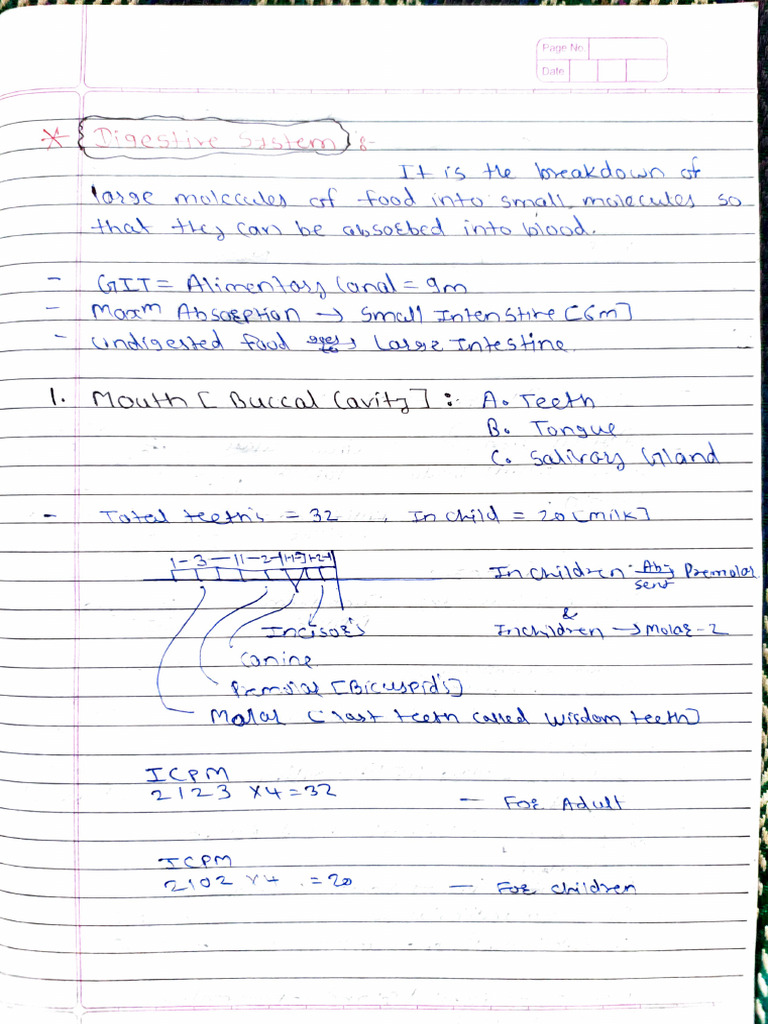 Page No.
Date
* Digestive System :-
It is the breakdown of
large molecules of food into small molecules so
that they can be absorbed into blood.
- GIT = Alimentary Canal = 9m
- Maxm Absorption → Small Intenstine [6m]
- undigested food → Large Intestine.
1. Mouth [Buccal Cavity] : A. Teeth
B. Tongue
C. Salivary Gland
- Total teeth's = 32 , In child = 20 [milk]
1-3-11-2-1-1-2-1
In children - Absent Premolar
&
Incisor's
In children → Molar - 2
Canine
Premolar [Bicuspid's]
Molar [last teeth called wisdom teeth]
ICPM
2123 x4 = 32 - For Adult
ICPM
2102 x4 = 20 - For children